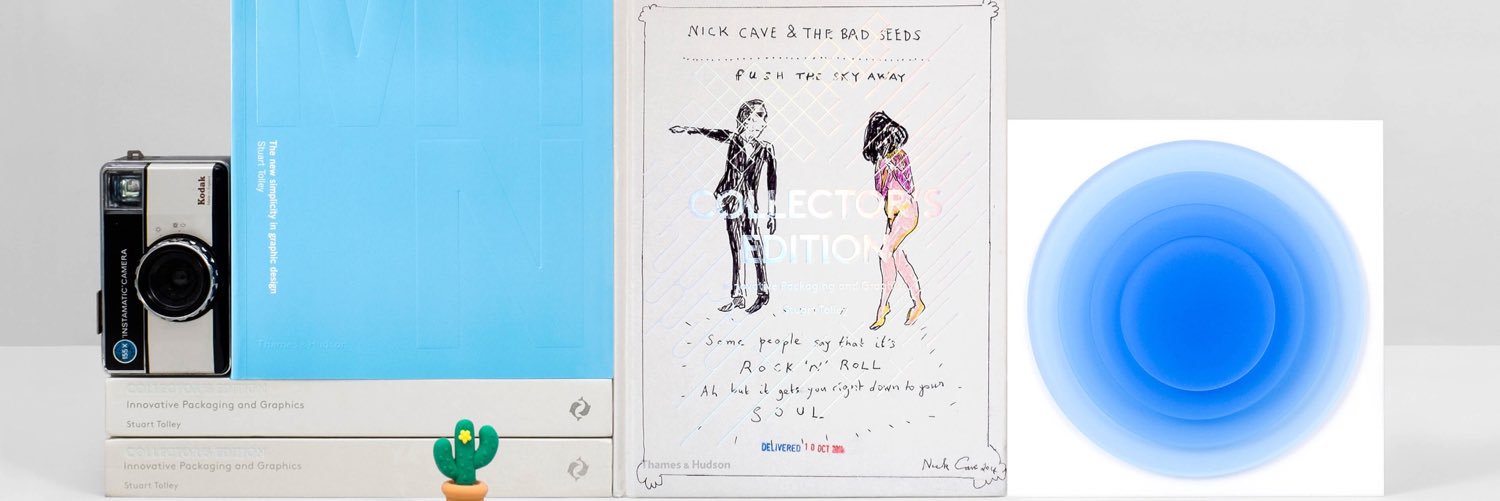 Kodak
INSTAMATIC® CAMERA
155X
MIN
The new simplicity in graphic design
Stuart Tolley
Thames & Hudson
COLLECTOR'S EDITION
Innovative Packaging and Graphics
Stuart Tolley
COLLECTOR'S EDITION
Innovative Packaging and Graphics
Stuart Tolley
NICK CAVE & THE BAD SEEDS
PUSH THE SKY AWAY
COLLECTOR'S
EDITION
Innovative Packaging and Graphics
Stuart Tolley
- Some people say that it's
ROCK 'N' ROLL
- Ah but it gets you right down to your -
SOUL
DELIVERED 10 OCT
Thames & Hudson
Nick Cave